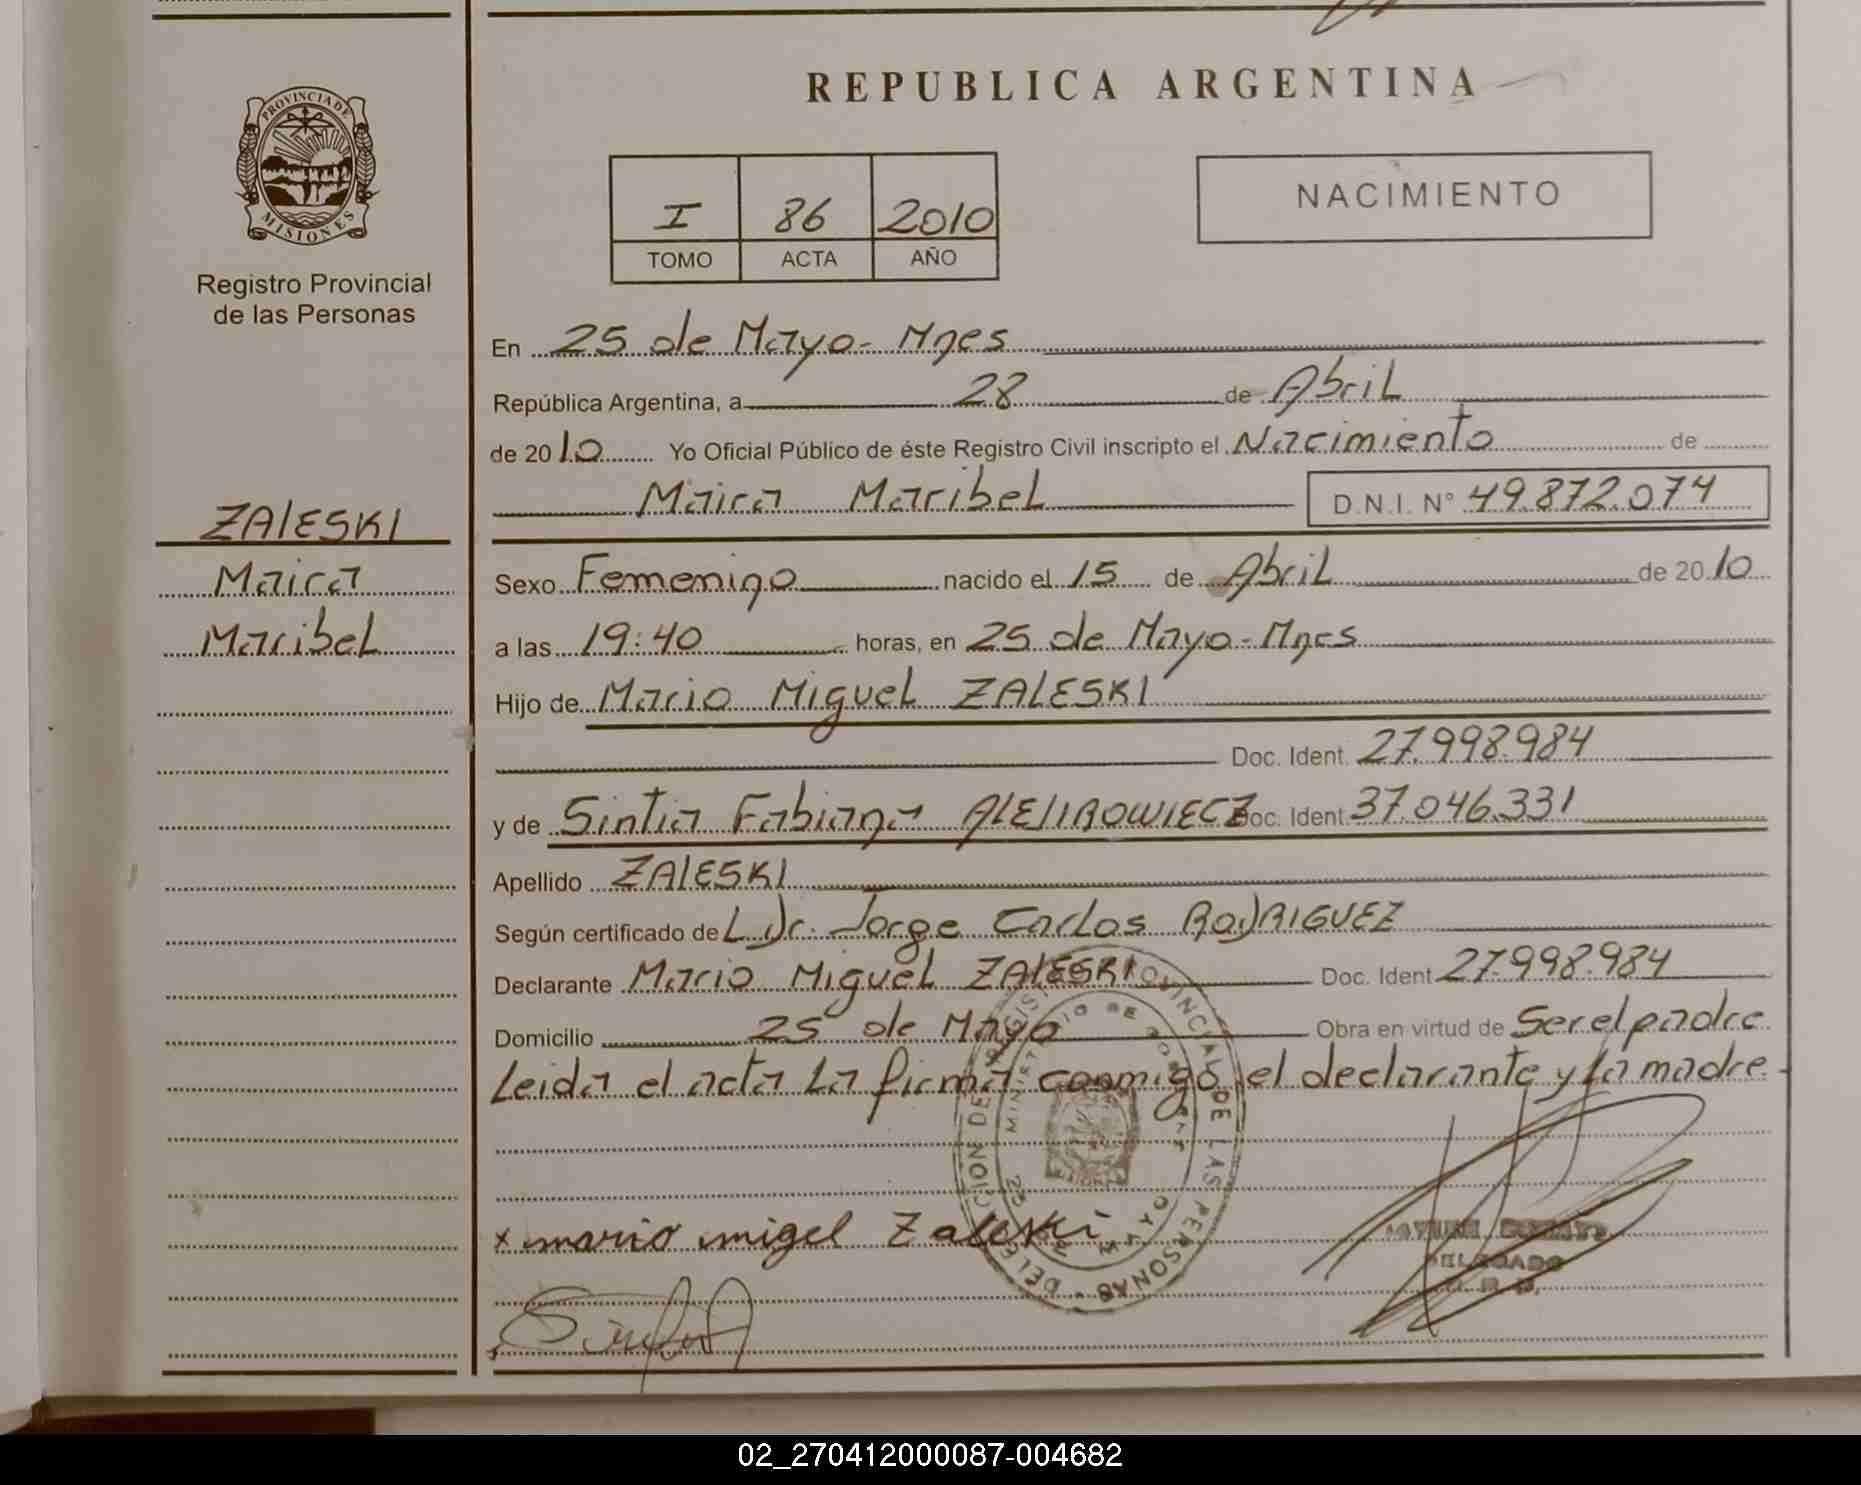 REPUBLICA ARGENTINA
PROVINCIA DE MISIONES
Registro Provincial
de las Personas
I 86 2010
TOMO ACTA AÑO
NACIMIENTO
En 25 de Mayo- Mnes
República Argentina, a 28 de Abril
de 2010 Yo Oficial Público de éste Registro Civil inscripto el Nacimiento de
Maira Maribel D.N.I. N° 49.872.074
ZALESKI
Maira
Maribel
Sexo Femenino nacido el 15 de Abril de 2010
a las 19:40 horas, en 25 de Mayo-Mnes
Hijo de Mario Miguel ZALESKI
Doc. Ident. 27.998.984
y de Sintia Fabiana Doc. Ident. 37.046.331
Apellido ZALESKI
Según certificado del Dr. Jorge Carlos RODRIGUEZ
Declarante Mario Miguel ZALESKI Doc. Ident 27.998.984
Domicilio 25 de Mayo Obra en virtud de Ser el padre
Leida el acta La firma conmigo el declarante y La madre
x mario migel Zaleski
DELEGADO
02_270412000087-004682